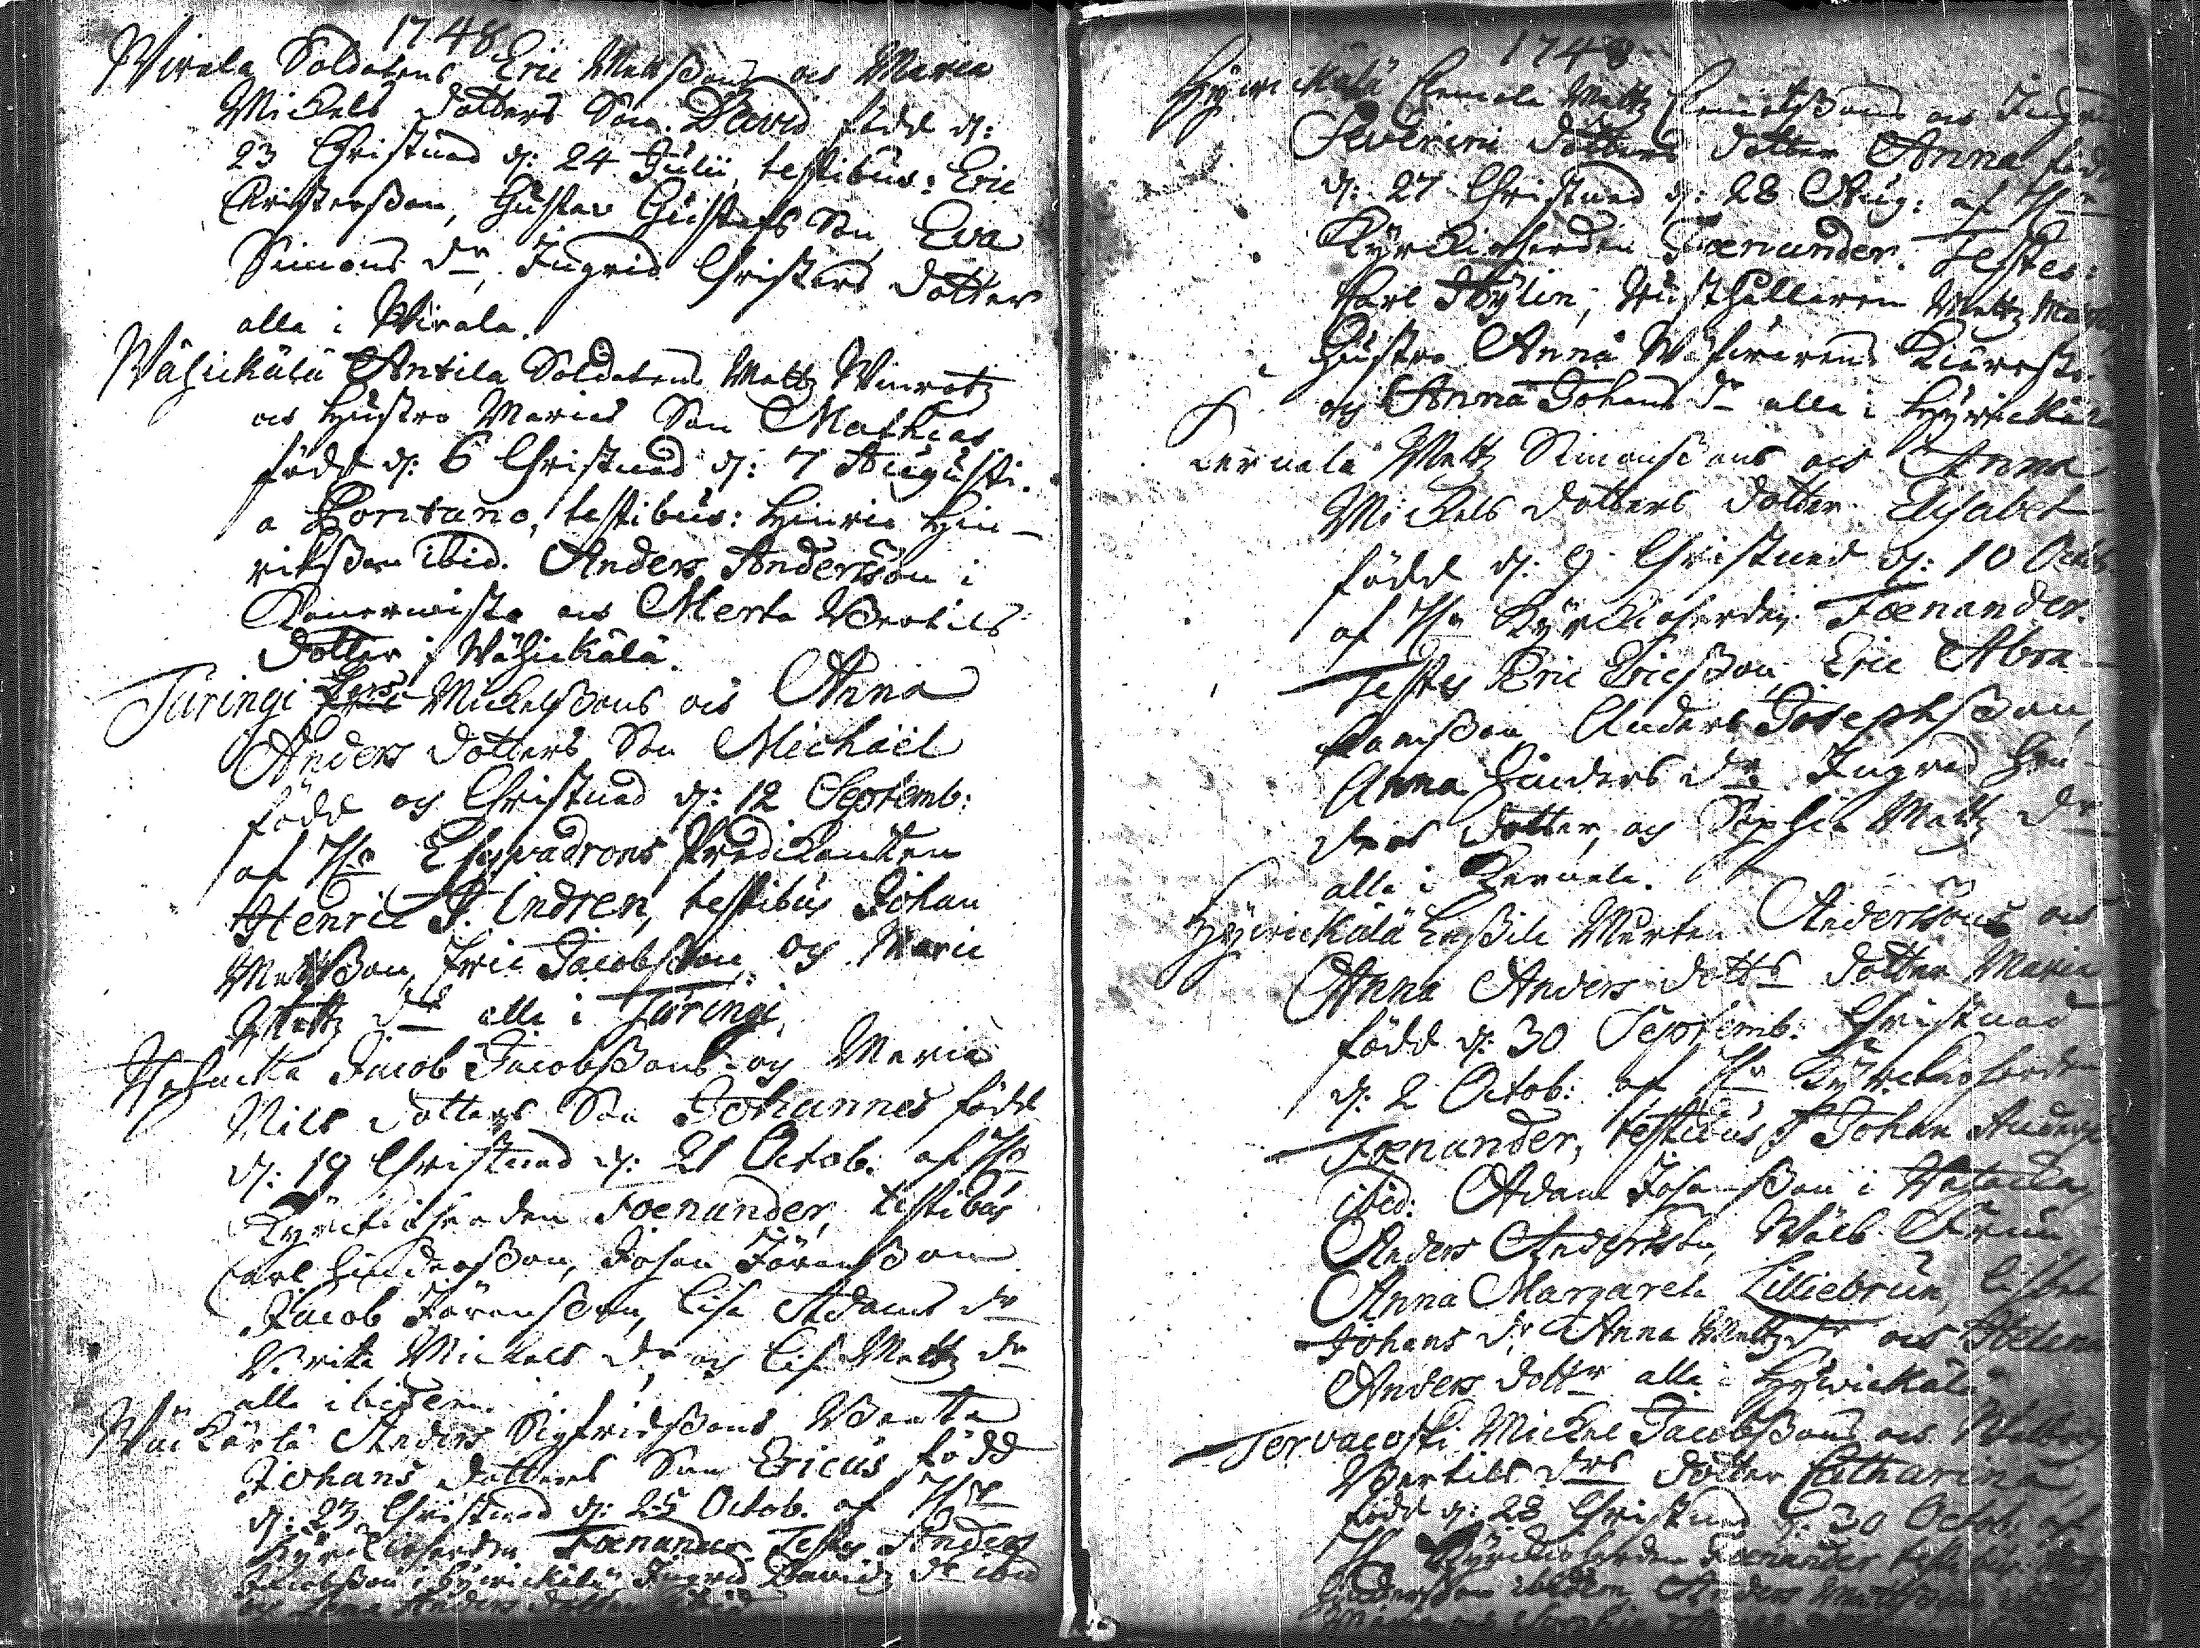 1748
Wirala Soldatens Eric Mattßons och Maria
Mickels dotters Son David född d:
23 Christnad d: 24 Julii, testibus: Eric
Christersson, Gustav Gustafs Son, Eva
Simons dr, Ingrid Christers dotter
alla i Wirala.
Wähickälä Antila Soldatens Mattz Winrotz
och Hustro Marias Son Mathias
född d: 6 Christnad d: 7 Augusti.
a Pontano, testibus: Hinric Hin-
rikßon ibid. Anders Andersson i
och Merta Bertils
dotter i Wähickälä.
Turingi Lars Mickelßons och Anna
Anders dotters Son Michaël
född och Christnad d: 12 Septemb:
af Hr Esqvadrons Predikanten
Henric J. Indren, testibus Johan
Mattßon, Eric Jacobßon, och Maria
Mattz dr alla i Turingi.
Jacob Jacobßons och Maria
Nils dotters Son Johannes född
d: 19 Christnad d: 21 Octob: af Hr
Kyrckioherden Foenander, testibus
Carl Hindersßon, Johan Göransßon
Jacob Göransßon, Lisa Adams dr
Brita Mickels dr och Lisa Mattz dr
alla ibidem.
Anders Sigfridßons Beata
Johans dotters Son Ericus född
d: 23 Christnad d: 25 Octob. af Hr
Kyrckioherden Foenander. Testes Anders
Jacobßon i Hywickälä Ingrid Davidz dr ibid
och Anna Anders dotter ibid
1748
Hywickälä Clemola Mattz Clemetßons och Ingrid
Severini dotters dotter Anna född
d: 27 Christnad d: 28 Aug: af Hr
Kyrckioherden Foenander. Testes:
Carl Thylin, Rusthållaren Mattz
Hustro Anna
och Anna Johans dr alla i Hywickälä
Kernala Mattz Simonssons och Anna
Mickels dotters dotter Elisabet
född d: 9 Christnad d: 10 Octob
af Hr Kyrckioherden Foenander.
Testes Eric Ericsßon, Eric Abra-
hamsßon, Anders Josephsßon,
Anna Hinders dr Ingrid Hin-
ders dotter, och Sophia Mattz dr
alla i Kernala.
Hywickälä Laßila Morten Anderssons och
Anna Anders dottrs dotter Maria
född d: 30 Septemb: Christnad
d: 2 Octob: af Hr Kyrckioherden
Foenander, testibus Johan Anders
ibid: Adam Johansßon i
Anders Andersson, Wälb. Frun
Anna Margareta Lilliebrun, Lisbet
Johans dr, Anna Mattz dr och Helena
Anders dottr alla i Hywickälä
Tervacoski Mickel Jacobßons och Walborg
Bertils drs dotter Catharina
född d: 28 Christnad d: 30 Octob: af
Hr Kyrckioherden Foenander testibus
Andersßon ibidem, Anders Mattßon